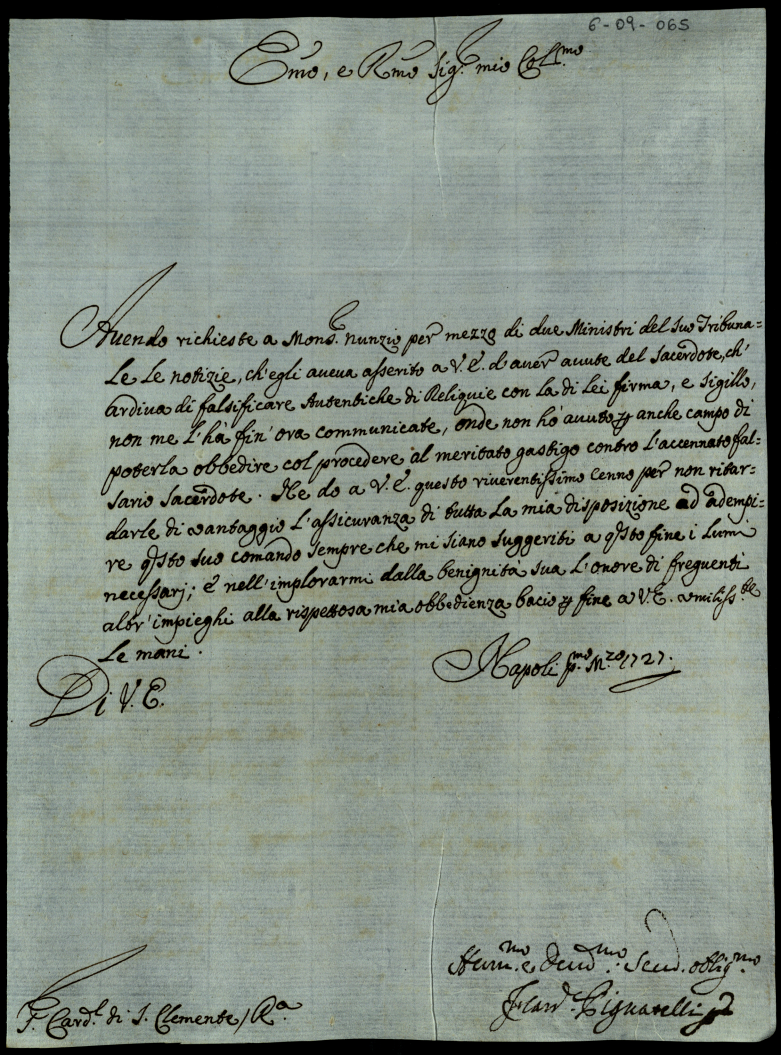 6-09-065
Emo, e Rmo Sig.r mio Coll.mo
Auendo richieste a Mons.r nunzio per mezzo di due Ministri del suo Tribuna=
le le notizie, ch'egli aueua asserito a V.E. d'auer auute del Sacerdote, ch'
ardiua di falsificare Autentiche di Reliquie con la di Lei firma, e Sigillo,
non me l'hà fin'ora communicate, onde non hò auuto anche campo di
poterla obbedire col procedere al meritato gastigo contro l'accennato fal=
sario Sacerdote. Ne do a V.E. questo riuerentissimo Cenno per non ritar=
darle di vantaggio l'assicuranza di tutta la mia disposizione ad adempi=
re q'sto suo comando sempre che mi siano suggeriti a q'sto fine i lumi
necessarj; e nell'implorarmi dalla benignità sua l'onore di frequenti
altr'impieghi alla rispettosa mia obbedienza bacio fine a V.E. vmiliss.te
le mani.
Napoli p.mo M.zo 1727.
Di V.E.
Hum.mo e Deud.mo Seru. oblig.mo
F. Card. Pignatelli
S.r Card.l di S. Clemente / R.a